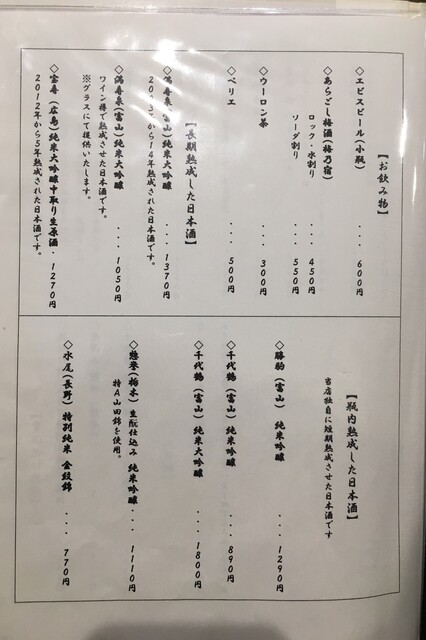 【お飲み物】
◇エビスビール(小瓶) ・・・600円
◇あらごし梅酒(梅乃宿)
ロック・水割り ・・・450円
ソーダ割り ・・・550円
◇ウーロン茶 ・・・300円
◇ペリエ ・・・500円
【長期熟成した日本酒】
◇満寿泉(富山)純米大吟醸 ・・・1370円
から14年熟成された日本酒です。
◇満寿泉(富山)純米大吟醸 ・・・1050円
ワイン樽で熟成させた日本酒です。
※グラスにて提供いたします。
◇宝寿(広島)純米大吟醸中取り生原酒・1270円
2012年から5年熟成された日本酒です。
【瓶内熟成した日本酒】
当店独自に短期熟成させた日本酒です
◇勝駒(富山) 純米吟醸 ・・・1290円
◇千代鶴(富山) 純米吟醸 ・・・890円
◇千代鶴(富山) 純米大吟醸 ・・・1800円
◇惣誉(栃木) 生酛仕込み 純米吟醸 ・・・1110円
特A山田錦を使用。
◇水尾(長野) 特別純米 金紋錦 ・・・770円